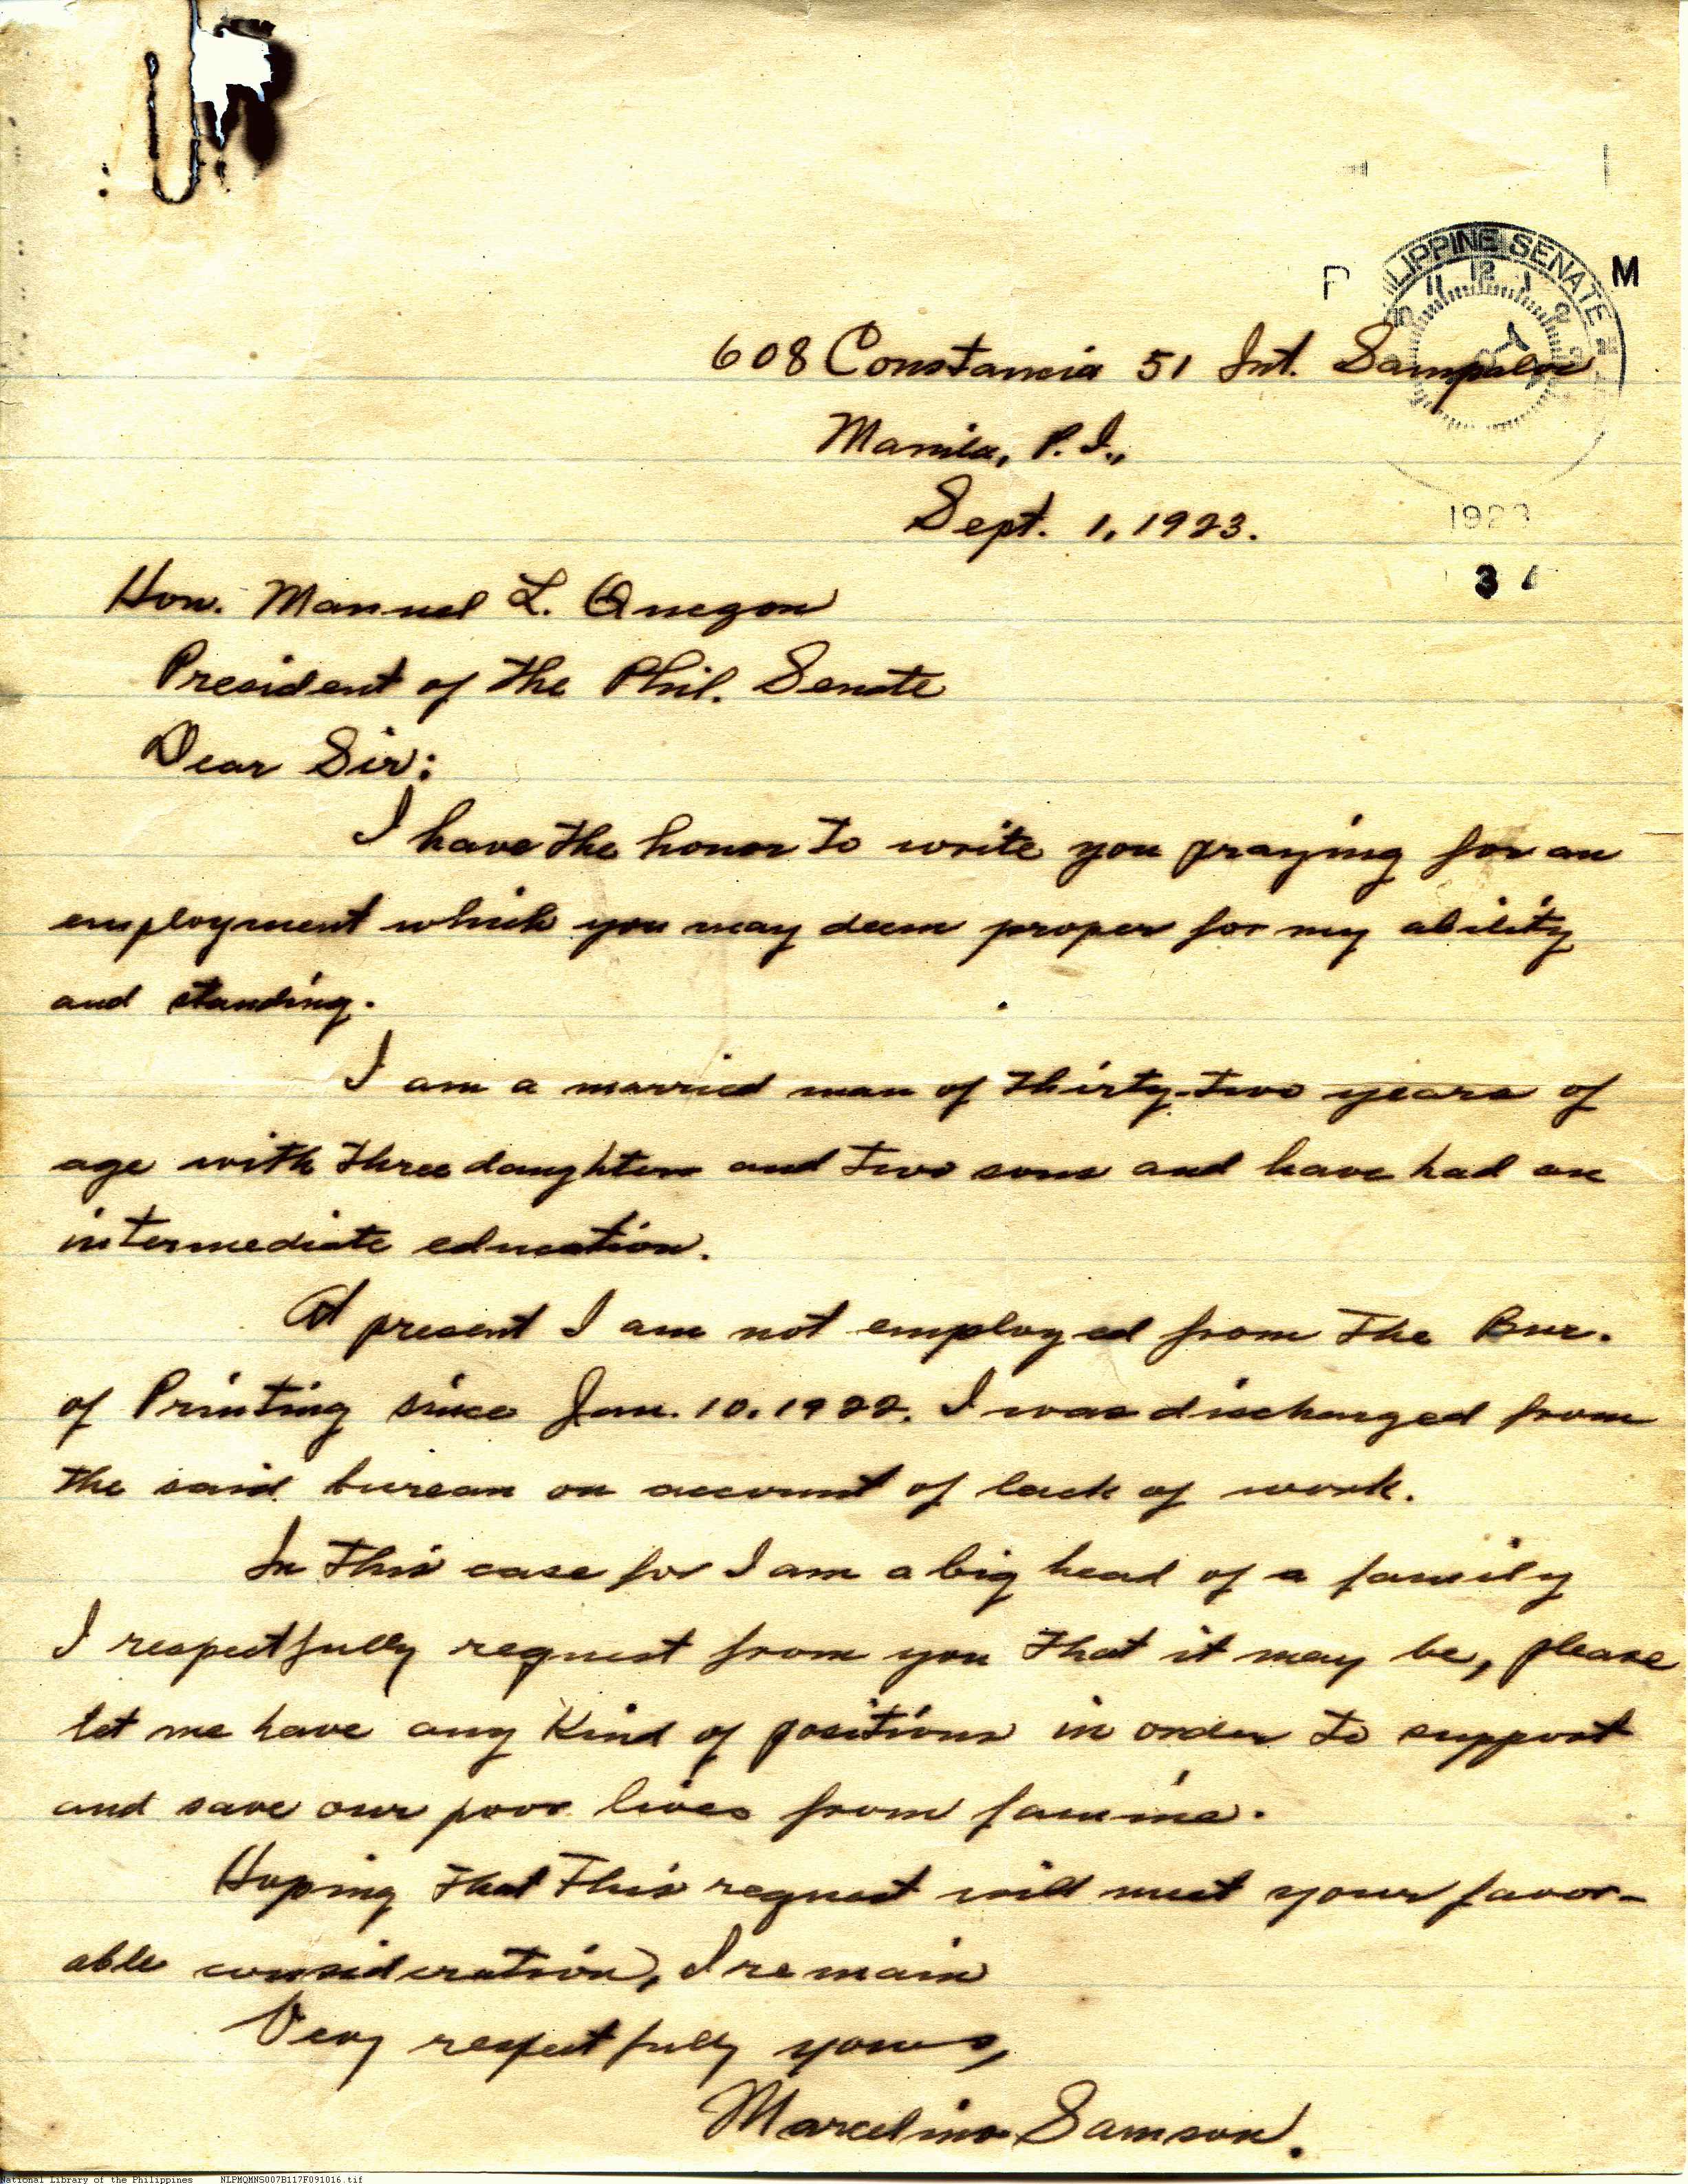 PHILIPPINE SENATE
P M
11 12 1 2
608 Constancia 51 Int. Sampaloc
Manila, P. I.,
Sept. 1, 1923.
1923
3
Hon. Manuel L. Quezon
President of the Phil. Senate
Dear Sir:
I have the honor to write you praying for an
employment which you may deem proper for my ability
and standing.
I am a married man of thirty-two years of
age with three daughters and two sons and have had an
intermediate education.
At present I am not employed from the Bur.
of Printing since Jan. 10. 1922. I was discharged from
the said bureau on account of lack of work.
In this case for I am a big head of a family
I respectfully request from you that it may be, please
let me have any kind of positions in order to support
and save our poor lives from famine.
Hoping that this request will meet your favor-
able consideration, I remain
Very respectfully yours,
Marcelino Samson.
National Library of the Philippines NLPMQMNS007B117F091016.tif